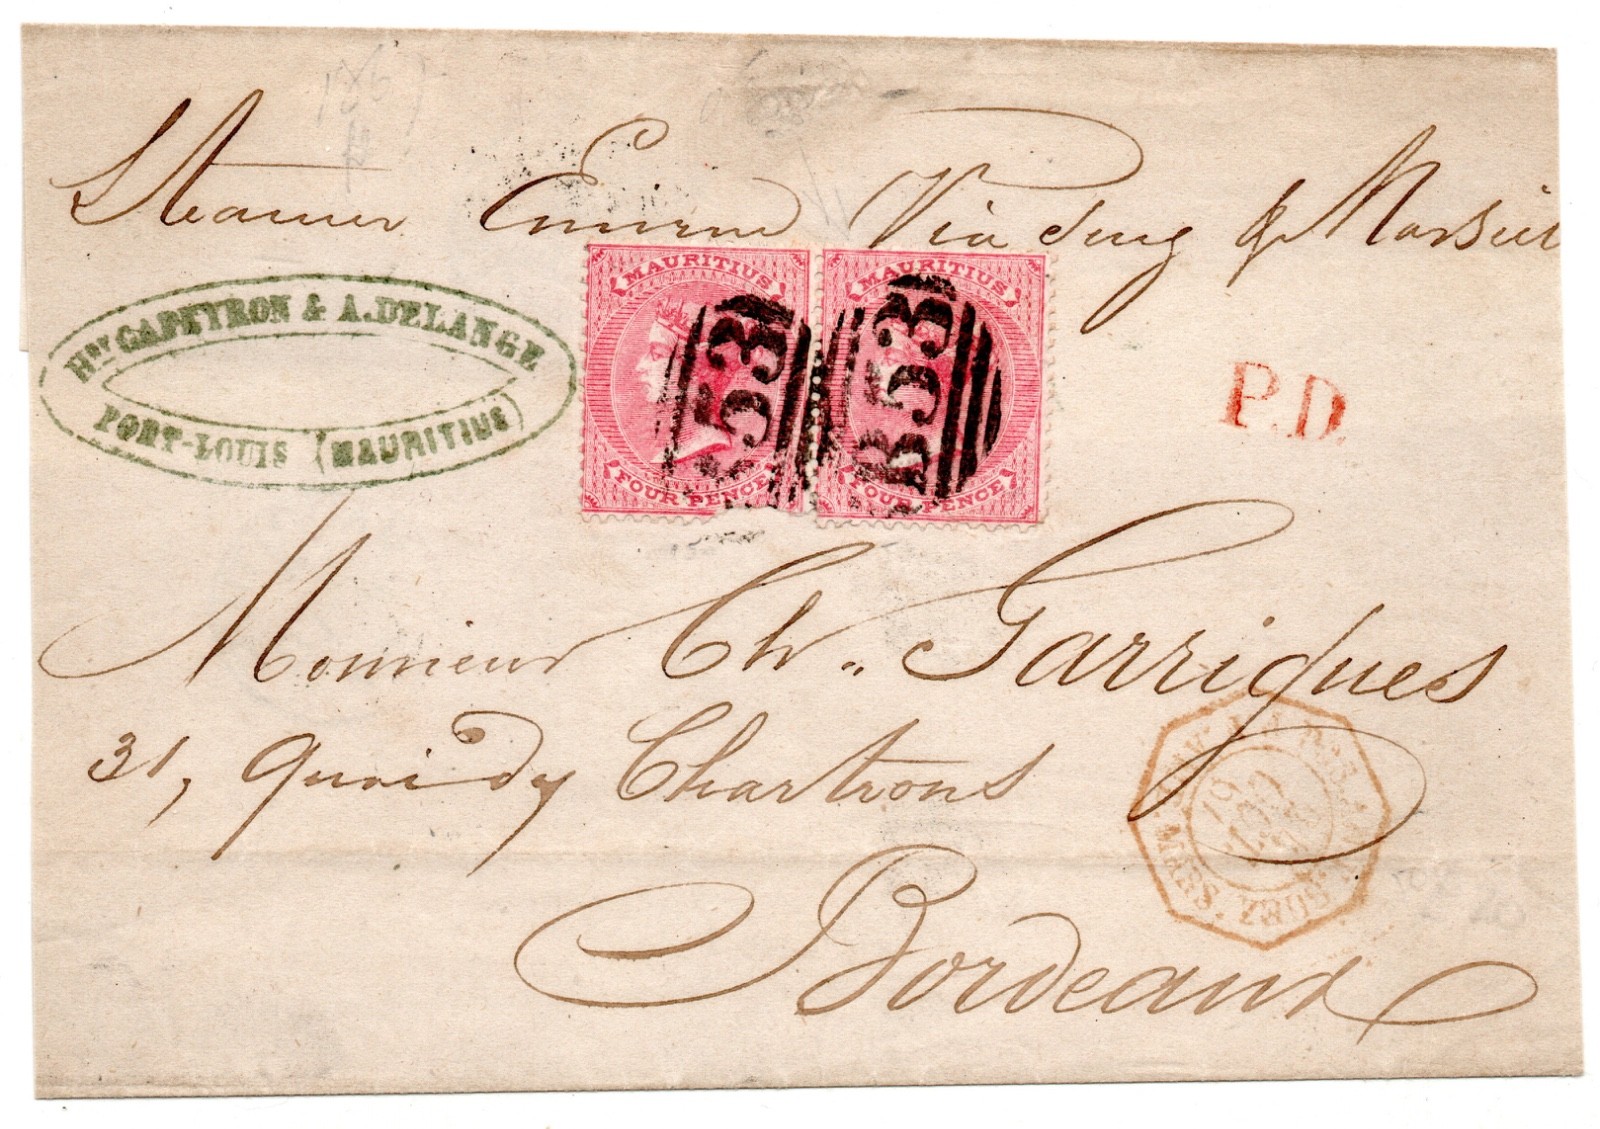 Steamer Emirne Via Suez & Marseille
Hry CAPEYRON & A. DELANGE
PORT-LOUIS (MAURITIUS)
MAURITIUS
FOUR PENCE
MAURITIUS
FOUR PENCE
53
B53
P.D.
Monsieur Ch.. Garrigues
31, Quai dy Chartrons
Bordeaux
SUEZ
MARS
19
AOUT